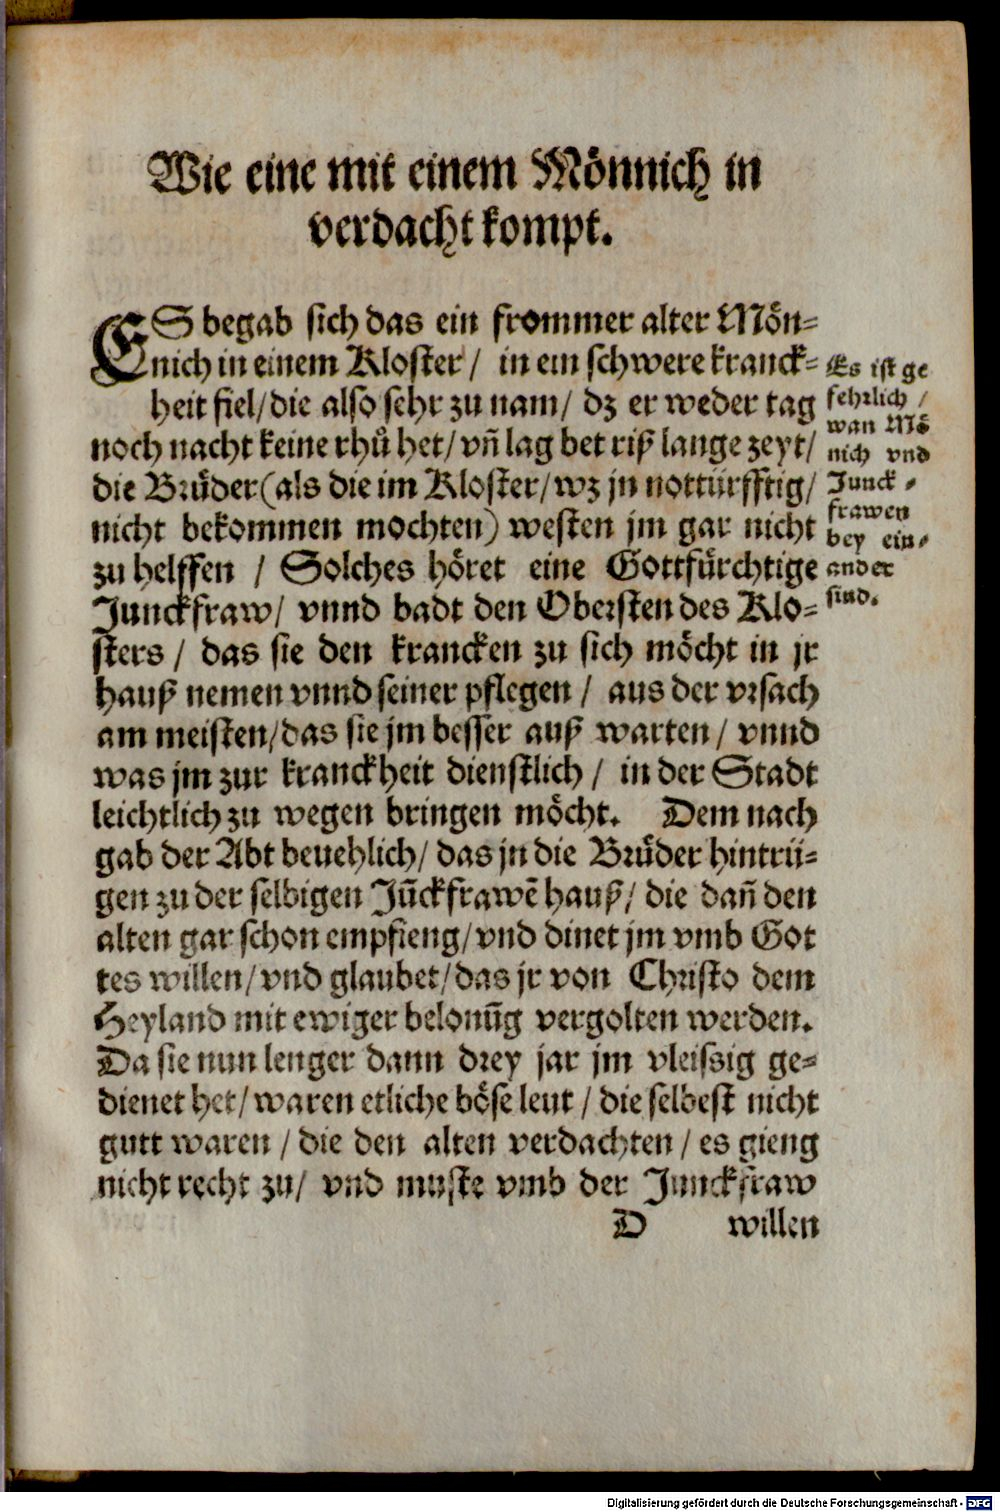 Wie eine mit einem Mönnich in
verdacht kompt.
ES begab sich das ein frommer alter Mön-
nich in einem Kloster / in ein schwere kranck-
heit fiel/die also sehr zu nam/ dz er weder tag
noch nacht keine rhů het/ vñ lag bet riß lange zeyt/
die Brůder(als die im Kloster/wz jn nottürfftig/
nicht bekommen mochten) westen jm gar nicht
zu helffen / Solches höret eine Gottfürchtige
Junckfraw/ vnnd badt den Obersten des Klo-
sters / das sie den krancken zu sich möcht in jr
hauß nemen vnnd seiner pflegen / aus der vrsach
am meisten/das sie jm besser auß warten / vnnd
was jm zur kranckheit dienstlich / in der Stadt
leichtlich zu wegen bringen möcht. Dem nach
gab der Abt beuehlich/ das jn die Brůder hintrü-
gen zu der selbigen Jũckfrawẽ hauß/ die dañ den
alten gar schon empfieng/vnd dinet jm vmb Got
tes willen/vnd glaubet/das jr von Christo dem
Heyland mit ewiger belonũg vergolten werden.
Da sie nun lenger dann drey jar jm vleissig ge-
dienet het/ waren etliche böse leut / die selbest nicht
gutt waren / die den alten verdachten / es gieng
nicht recht zu/ vnd muste vmb der Junckfraw
D willen
Es ist ge
fehrlich /
wan Mö
nich vnd
Junck-
frawen
bey ein-
ander
sind.
Digitalisierung gefördert durch die Deutsche Forschungsgemeinschaft - DFG